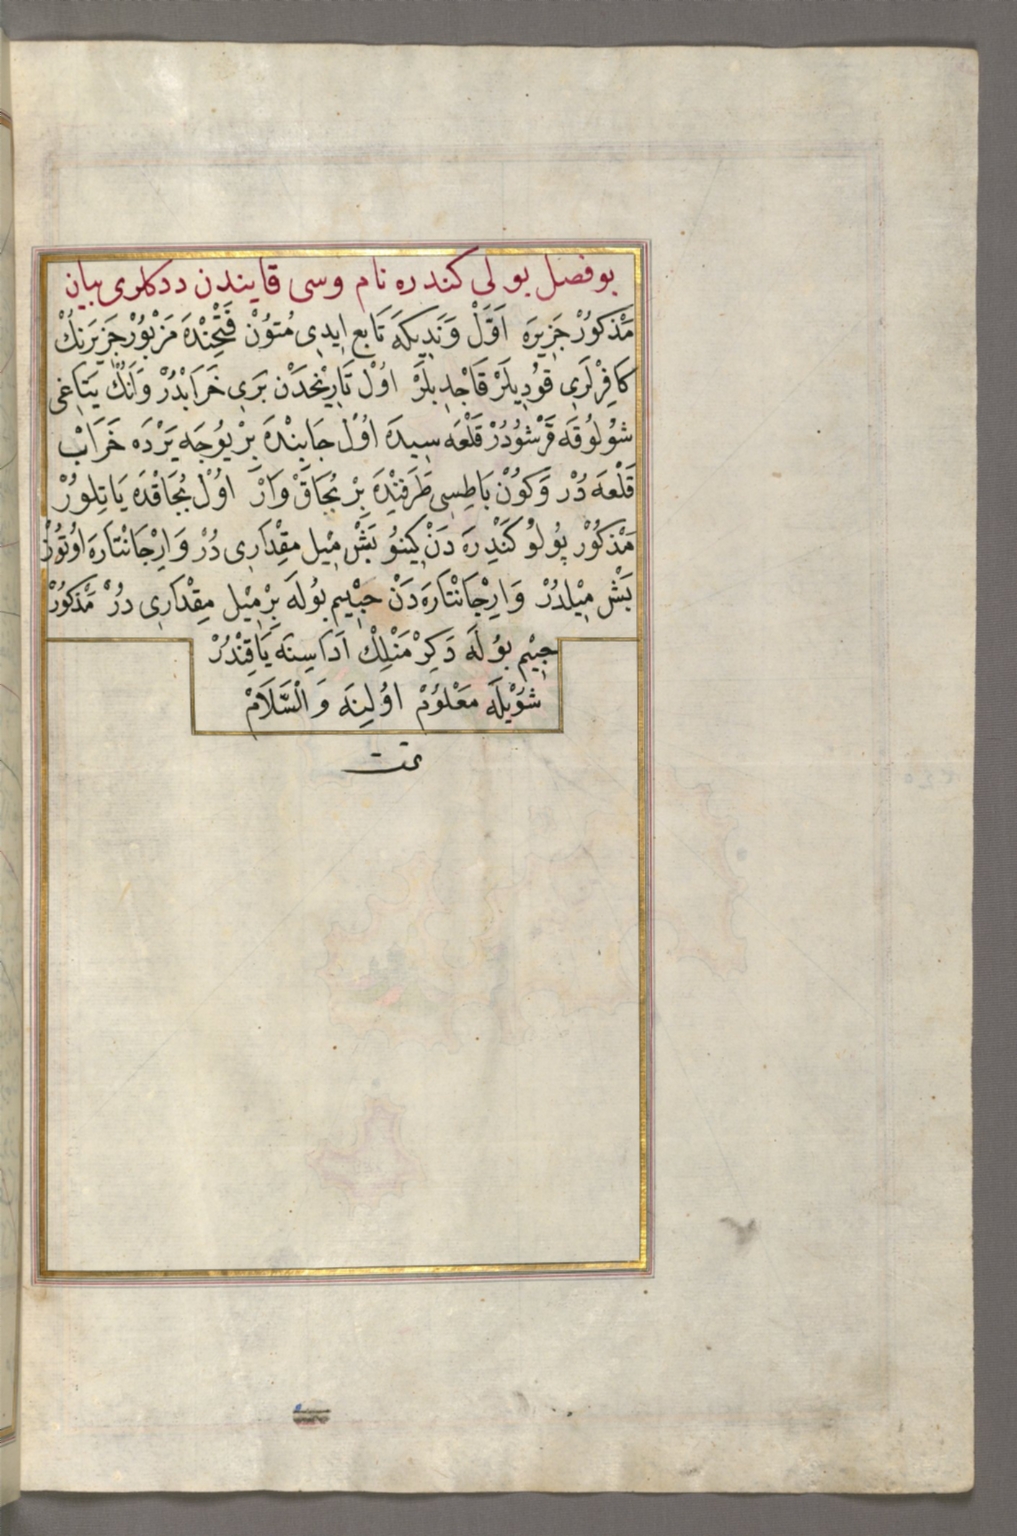 بو فصل بولی کندره نام وسی قایندن ددکلری بیان
مَذْکُورْ جَزِیرَه اَوَّلْ وَنَدِیکَه تَابِع ایدِی مُتوُنْ فَتْحِنْدَه مَزْبُوْر جَزِیرَنِكْ
کافِرْلَرِی قوُدِیلَرْ قَاچْدِیلَرْ اوُلْ تَارِیْخْدَنْ بَرِی خَرَابْدُرْ وَانَكْ یَتَاغِی
شوُلوُقَه قَرْشوُدُرْ قَلْعَه سِیدَه اوُلْ جَانِبْدَه بِرْ یوُجَه یَرْدَه خَرَابْ
قَلْعَه دُرْ وَکوُنْ بَاطِسِی طَرَفِنْدَه بِرْ بُجَاقْ وَارْ اوُلْ بُجَاقْدَه یَاتِلوُرْ
مَذْکوُرْ پُولوُ کَنْدِرَه دَنْ کِینوُ بَشْ مِیل مِقْدَارِی دُرْ وَارِجَانْتَارَه اوُتوُزْ
بَشْ مِیْلدُرْ وَارِجَانْتَارَه دَنْ جِیِیم بوُلَه بِرْ مِیْل مِقْدَارِی دُرْ مَذْکوُرْ
جِیِیم بوُلَه دَکِرْمَنْلِكْ اَدَاسِنَه یَاقِنْدُرْ
شوُیْلَه مَعْلوُمْ اوُلِنَه وَالْسَّلَامْ
تمت